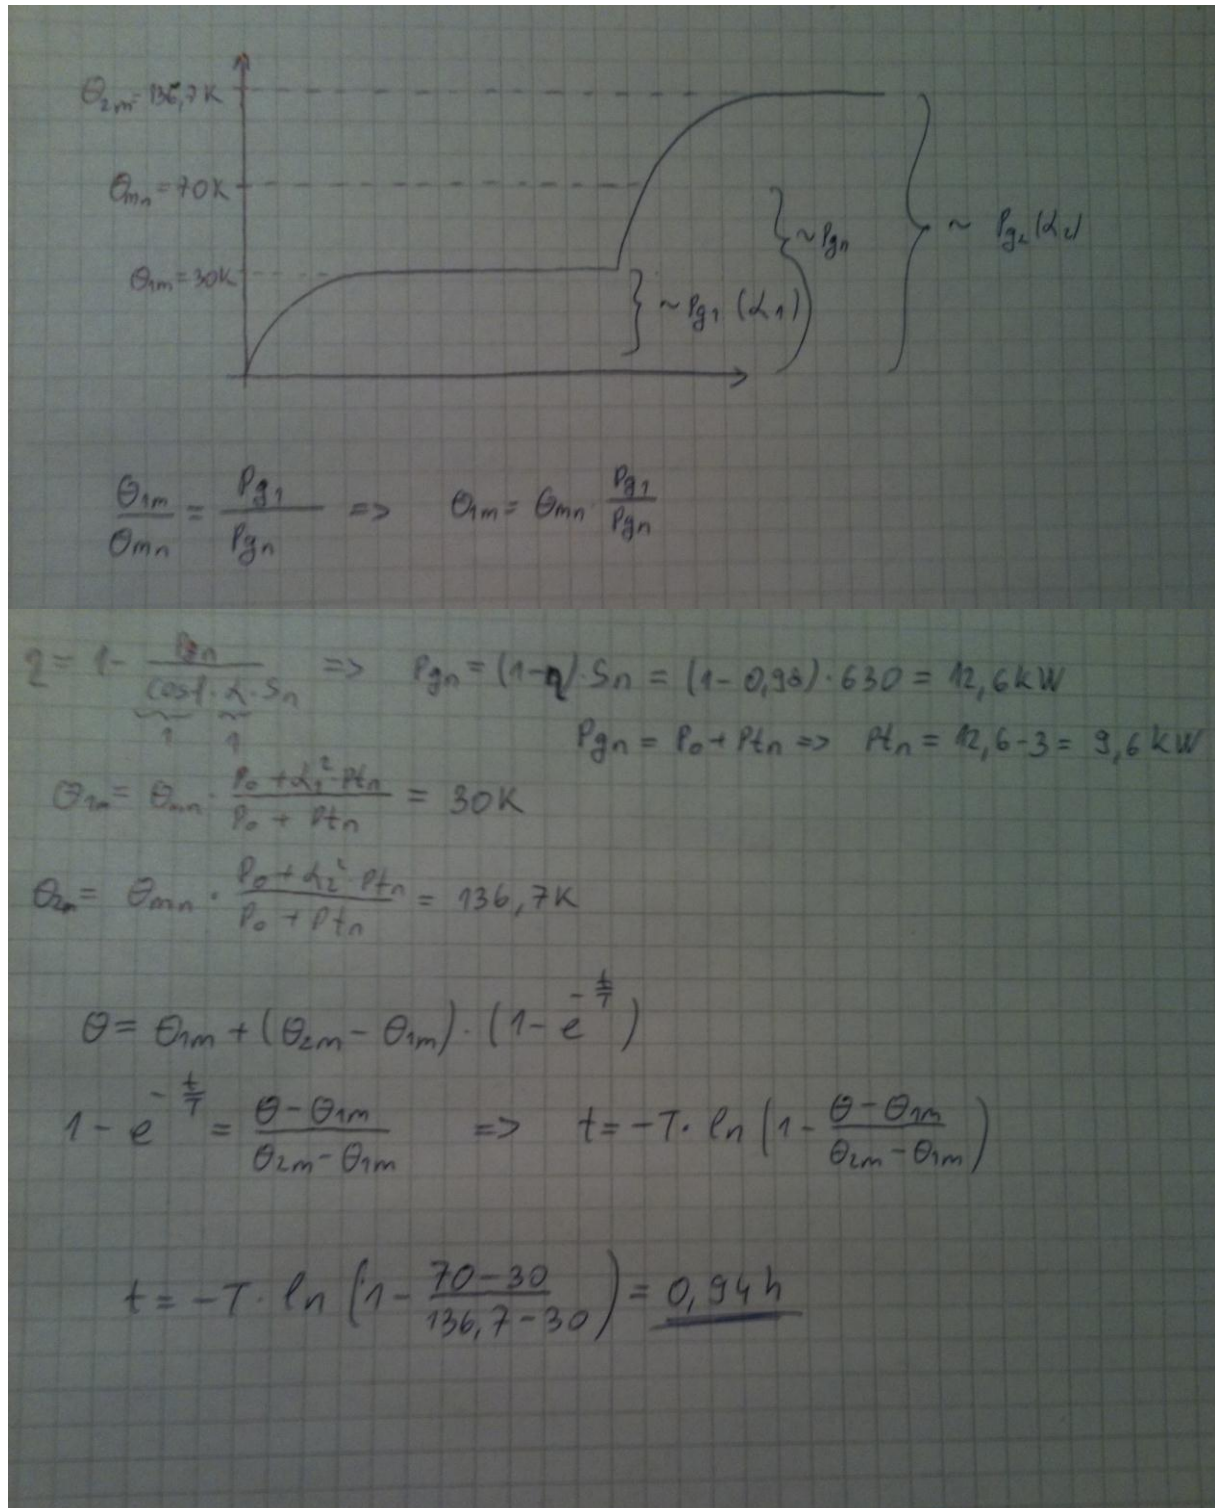 Θ2m=136,7K
Θmn=70K
Θ1m=30K
~Pg1 (α1)
~Pgn
~ Pg2(α2)
Θ1m/Θmn = Pg1/Pgn => Θ1m = Θmn · Pg1/Pgn
η = 1 - Pgn/(cosφ · α · Sn) => Pgn = (1-η)·Sn = (1-0,98)·630 = 12,6kW
1 1
Pgn = P0 + Ptn => Ptn = 12,6-3 = 9,6kW
Θ1m = Θmn · (P0 + α1² · Ptn)/(P0 + Ptn) = 30K
Θ2m = Θmn · (P0 + α2² · Ptn)/(P0 + Ptn) = 136,7K
Θ = Θ1m + (Θ2m - Θ1m) · (1 - e^(-t/T))
1 - e^(-t/T) = (Θ-Θ1m)/(Θ2m-Θ1m) => t = -T · ln(1 - (Θ-Θ1m)/(Θ2m-Θ1m))
t = -T · ln(1 - (70-30)/(136,7-30)) = 0,94h